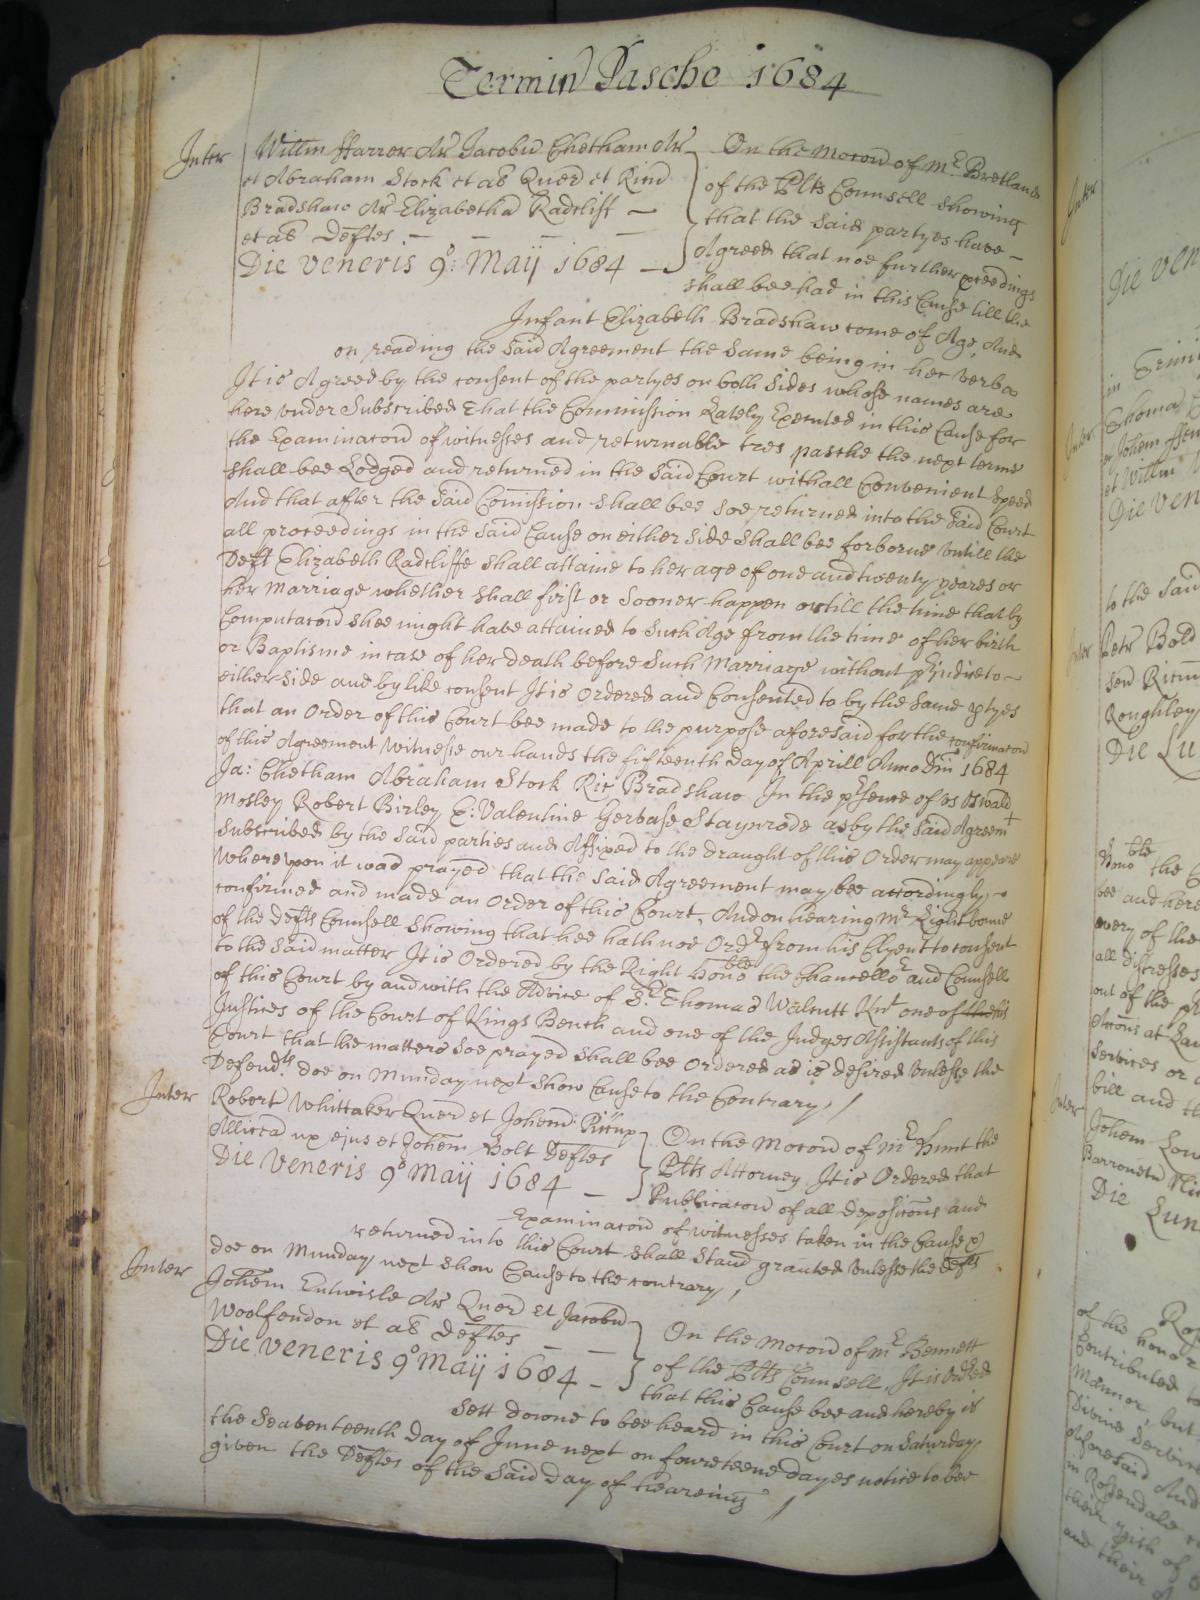 Termin Pasche 1684
Inter Willm Farrer Ar Jacobu Chetham Ar
et Abraham Stock et al Quer et Ricu
Bradshaw Ar Elizabetha Radcliff —
et al Deftes. — — — —
Die Veneris 9º: Maij 1684 —
On the Mocon of Mr Bretland
of the Plts Counsell showing
that the said partyes have —
Agreed that noe further proceedings
shall bee had in this Cause till the
Infant Elizabeth Bradshaw come of Age, And
on reading the said Agreement the same being in hec verba
It is Agreed by the consent of the partyes on both sides whose names are
here under Subscribed That the Commission Lately Executed in this Cause for
the Examinacon of witnesses and returnable tres pasche the next terme
shall bee Lodged and returned in the said Court with all Convenient Speed
And that after the said Comission shall bee soe returned into the said Court
all proceedings in the said Cause on either side shall bee forborne untill the
Deft Elizabeth Radcliffe shall attaine to her age of one and twenty yeares or
her Marriage whether shall first or sooner happen or till the time that by
Computacon shee might have attained to such Age from the time of her birth
or Baptisme in case of her death before such Marriage without pjudice to —
either side and by like consent It is ordered and Consented to by the same ptyes
that an Order of this Court bee made to the purpose aforesaid for the confirmacon
of this Agreement Witnesse our hands the fifteenth day of Aprill Anno Dni 1684
Ja: Chetham Abraham Stock Ric Bradshaw In the psence of us Oswald
Mosley Robert Birley E: Valentine Gervase Staynrode as by the said Agreemt
Subscribed by the said parties and Affixed to the draught of this Order may appeare
Whereupon it was prayed that the said Agreement may bee accordingly —
confirmed and made an Order of this Court, And on hearing Mr Lightbowne
of the Defts Counsell Showing that hee hath noe Ordr from his Clyent to consent
to the said matter It is Ordered by the Right Honoble the Chancellor and Counsell
of this Court by and with the Advice of Sr Thomas Walcutt Knt one of the his
Justices of the Court of Kings Bench and one of the Judges Assistants of this
Court that the matters soe prayed shall bee Ordered as is desired unlesse the
Defendts doe on Munday next show Cause to the Contrary /
Inter Robert Whittaker Quer et Johem
Alicia ux ejus et Johem Holt Deftes
Die Veneris 9º Maij 1684 —
On the Mocon of Mr Hunt the
Plts Attorney It is Ordered that
Publicacon of all deposicons and
Examinacon of witnesses taken in the Cause &
returned into this Court shall Stand granted unlesse the Defts
doe on Munday next show Cause to the contrary /
Inter Johem Entwisle Ar Quer et Jacobu
Woolfendon et al Deftes — —
Die Veneris 9º Maij 1684 —
On the Mocon of Mr Bennett
of the Plts Counsell, It is Ordred
that this Cause bee and hereby is
Sett downe to bee heard in this Court on Saturday
the Seaventeenth day of June next on foureteene dayes notice to bee
given the Deftes of the said day of heareing /
Inter
Die Ven
Thoma
Inter
et Willm
Die Ven
to the said
Inter Petr Bold
Sen Ricu
Roughley
Die Lu
the
bee and here
every of the
all distresses
out of the
at
Services or
bill and th
Inter
Johem
Die Lun
of the honor
Contributed
Mannor, but
Divine Service
Aforesaid And
in Rossendale
their
and their